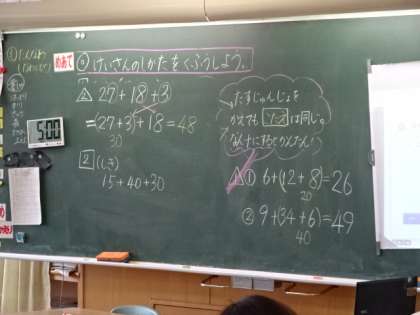 めあて
けいさんのしかたをくふうしよう。
27+18+3
=(27+3)+18=48
30
2 (しき)
15+40+30
5:00
たすじゅんじょを
かえても こたえ は同じ。
なん十にするとかんたん!
① 6+(12+8)=26
20
② 9+(34+6)=49
40